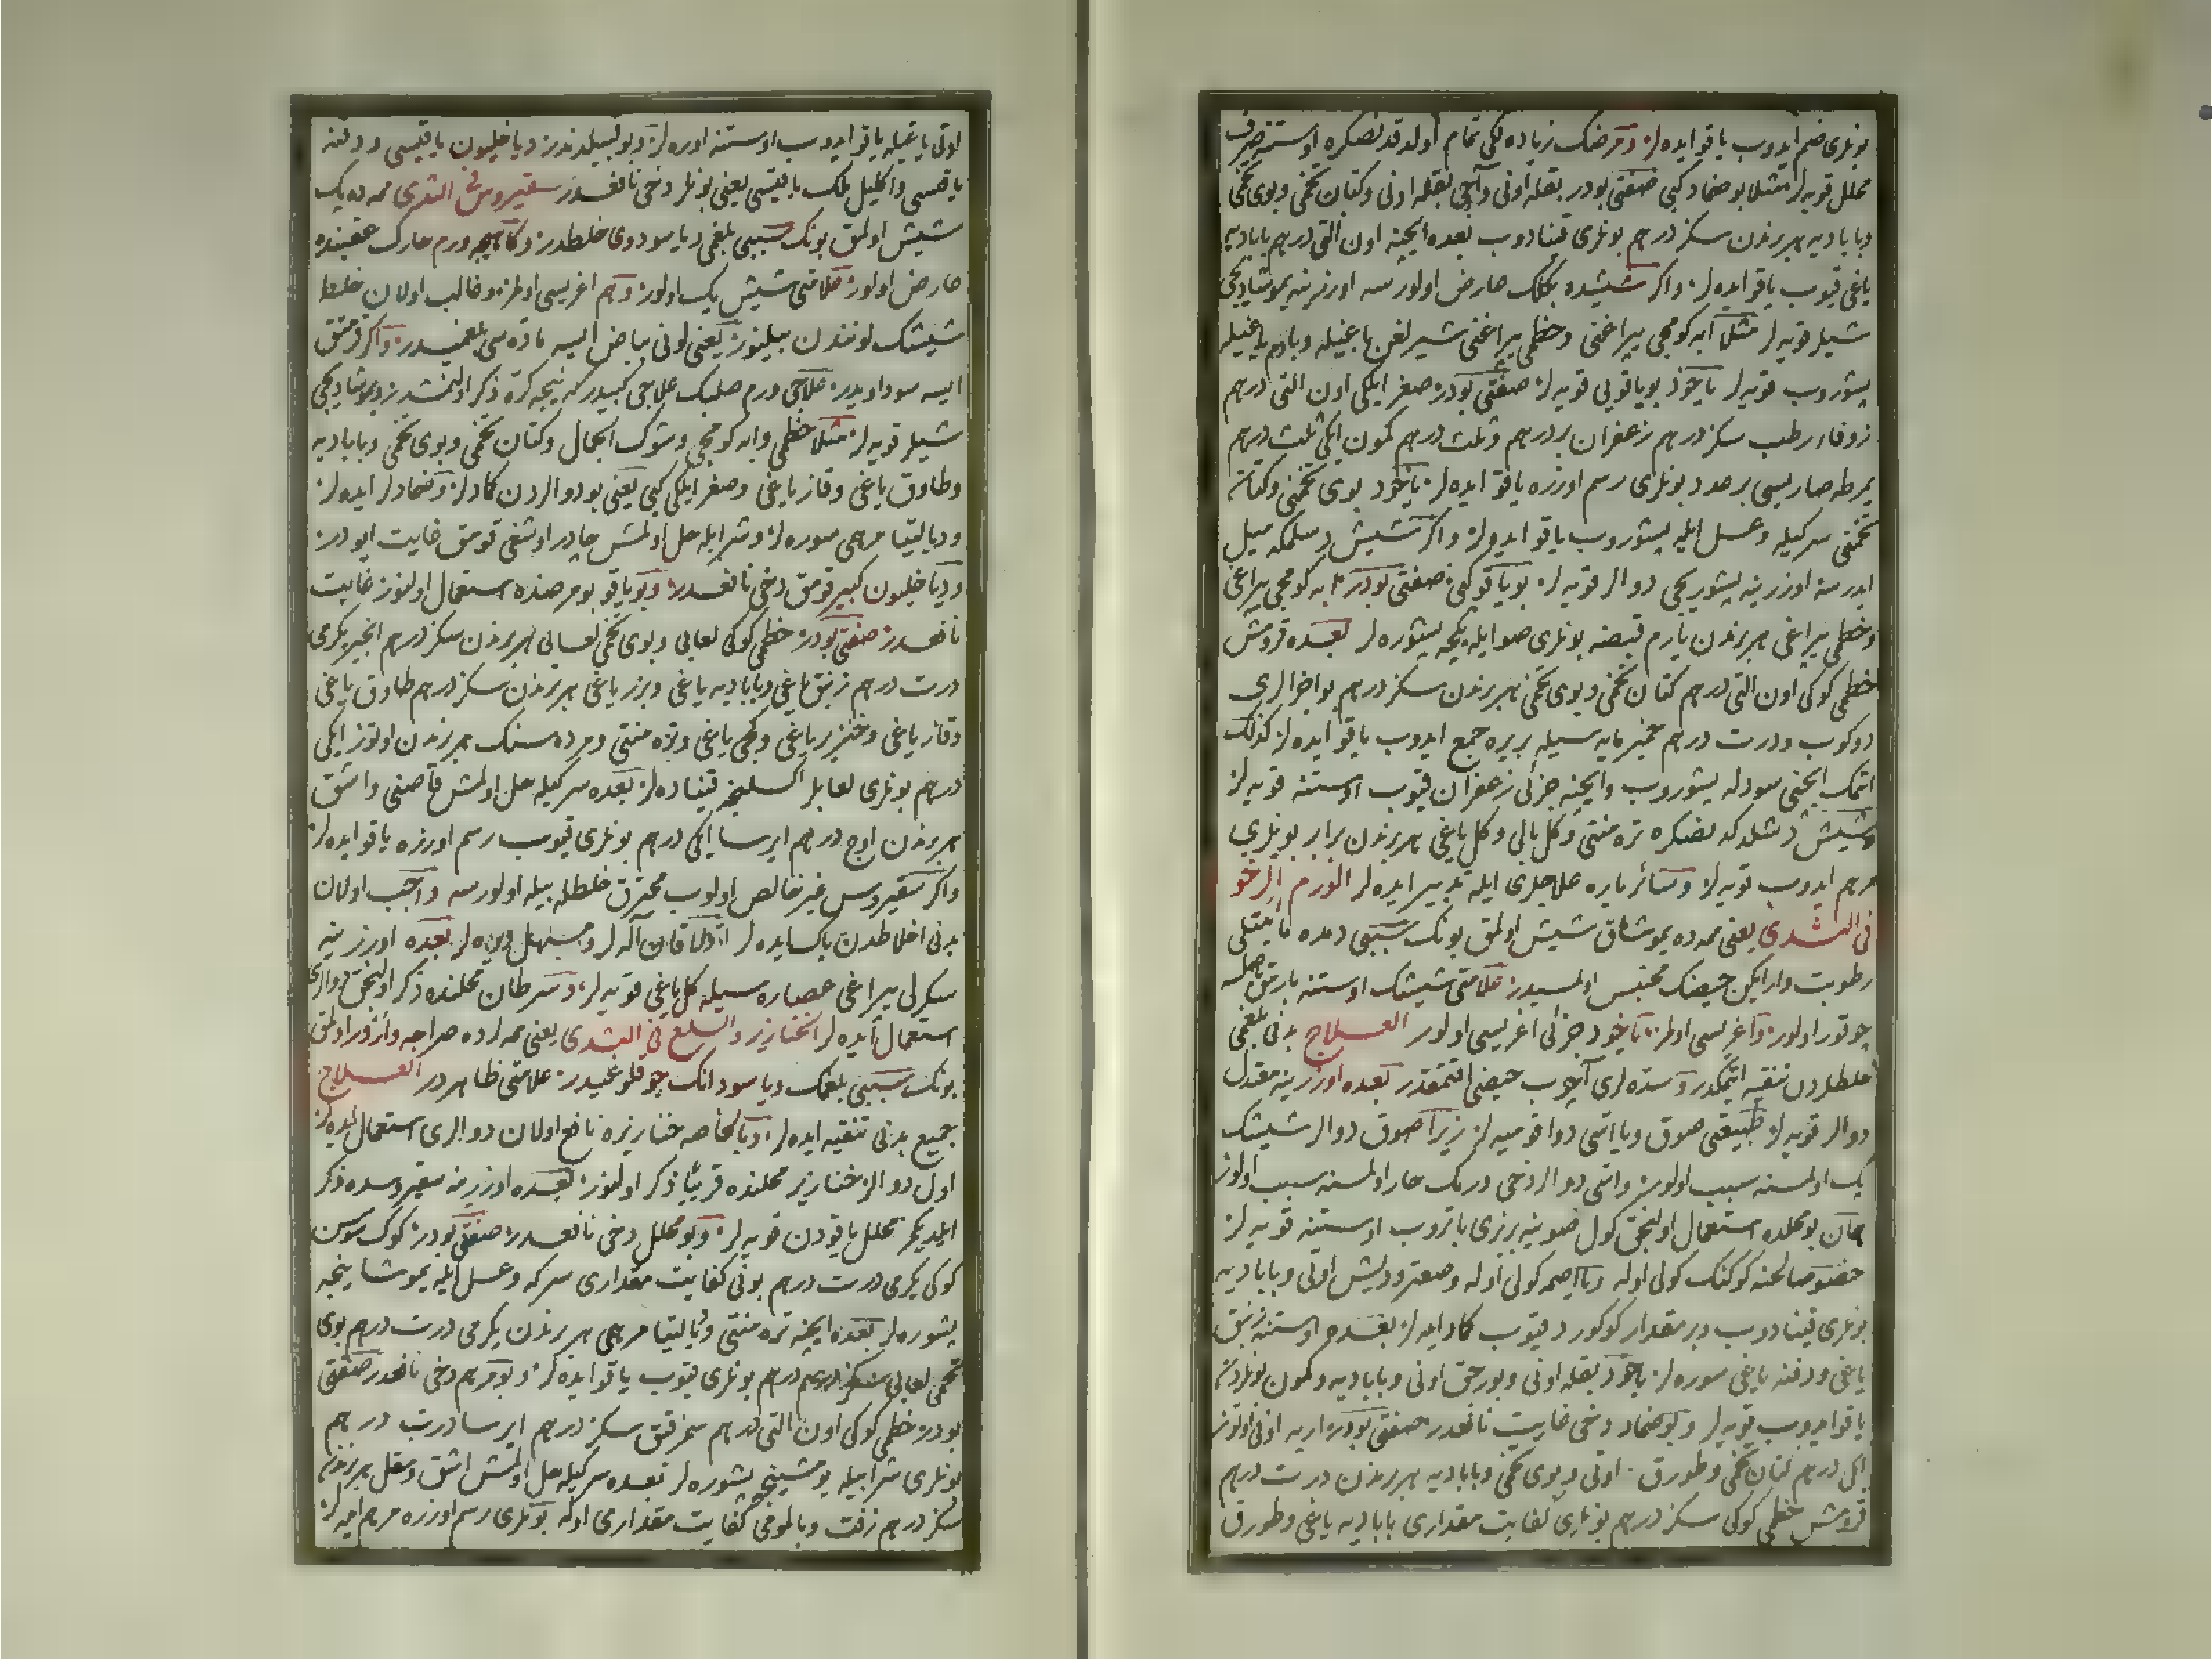 بونلری ضم ایدوب یاقو ایده‌لر ومرضك زیاده‌لکی تمام اولدقدنصکره اوستنه صرف
محلل قویه‌لر مثلا بو ضماد کبی صفتی بودر بقله اونی وآجی بقله اونی وکتان تخمی وبوی تخمی
وبابادیه هر برندن سکز درهم بونلری قینادوب بعده ایچنه اون التی درهم بابادیه
یاغی قیوب یاقو ایده‌لر واکر شیشده بکلك عارض اولورسه اوزرینه یموشادیجی
شیلر قویه‌لر مثلا ابه کومجی یپراغنی وخطمی یپراغنی شیرلغن یاغیله وبادم یاغیله
پشوروب قویه‌لر یاخود بو یاقویی قویه‌لر صفتی بودر صغر ایلکی اون التی درهم
زوفاء رطب سکز درهم زعفران بر درهم وثلث درهم کمون ایکی ثلث درهم
یمرطه صاریسی بر عدد بونلری رسم اوزره یاقو ایده‌لر یاخود بوی تخمنی وکتان
تخمنی سرکیله وعسل ایله پشوروب یاقو ایده‌لر واکر شیش دشلمکه میل
ایدرسه اوزرینه پشوریجی دوالر قویه‌لر بو یاقو کبی صفتی بودر ابه کومجی یپراغی
وخطمی یپراغی هر برندن یارم قبضه بونلری صو ایله یکجه پشوره‌لر بعده قرومش
خطمی کوکی اون التی درهم کتان تخمی وبوی تخمی هر برندن سکز درهم بو اجزالری
دوکوب ودرت درهم خمیر مایه‌سیله بریره جمع ایدوب یاقو ایده‌لر کذلك
اتمك ایچنی سودله پشوروب وایچنه جزئی زعفران قیوب اوستنه قویه‌لر
وشیش دشلدکدنصکره تره‌منتی وکل بالی وکل یاغی هر برندن برابر بونلری
مرهم ایدوب قویه‌لر وسائر یاره علاجلری ایله تدبیر ایده‌لر الورم الرخو
فی الثدی یعنی ممه‌ده یموشاق شیش اولمق بونك سببی ممه‌ده
رطوبت وار ایکن حیضك محتبس اولمسیدر علامتی شیشك اوستنه بارمق باصلسه
چوقور اولور واغریسی اولمز یاخود جزئی اغریسی اولور العلاج بدنی بلغمی
خلطلردن تنقیه ایتمکدر وسده‌لری آچوب حیضی ایتمقدر بعده اوزرینه معتدل
دوالر قویه‌لر طبیعتی صوق ویا اسی دوا قومیه‌لر زیرا صوق دوالر شیشك
پك اولمسنه سبب اولور واسی دوالر دخی ورمك حار اولمسنه سبب اولور
همان بو محلده استعمال اولنجق کول صوینه بزی باتروب اوستنه قویه‌لر
خصوصا لحنه کوکنك کولی اوله ویا اصمه کولی اوله وصعتر ودیش اوتی وبابادیه
بونلری قینادوب وبر مقدار کوکورد قیوب کماد ایده‌لر بعده اوستنه زنبق
یاغی ودفنه یاغی سوره‌لر یاخود بقله اونی وبورجق اونی وبابادیه وکمون بونلردن
یاقو ایدوب قویه‌لر وبو ضماد دخی غایت نافعدر صفتی بودر ارپه اونی اوتوز
ایکی درهم کتان تخمی وطورق اوتی وبوی تخمی وبابادیه هر برندن درت درهم
قرومش خطمی کوکی سکز درهم بونلری کفایت مقداری بابادیه یاغی وطورق
اوتی یاغیله یاقو ایدوب اوستنه اوره‌لر وبو قبیلدندر دیاخلیون یاقیسی ودفنه
یاقیسی واکلیل ملك یاقیسی یعنی بونلر دخی نافعدر سقیروس فی الثدی ممه‌ده پك
شیش اولمق بونك سببی بلغمی ویا سوداوی خلطدر وکاهیجه ورم حارك عقبنده
عارض اولور علامتی شیش پك اولور وهم اغریسی اولمز وغالب اولان خلط
شیشك لونندن بیلنور یعنی لونی بیاض ایسه ماده‌سی بلغمیدر واکر قرمتق
ایسه سوداویدر علاجی ورم صلبك علاجی کبیدر که نیجه کره ذکر اولنمشدر ویموشادیجی
شیلر قویه‌لر مثلا خطمی وابه کومجی وشوك الجمال وکتان تخمی وبوی تخمی وبابادیه
وطاوق یاغی وقاز یاغی وصغر ایلکی کبی یعنی بو دوالردن کمادلر وضمادلر ایده‌لر
ودیالتیا مرهمی سوره‌لر وشراب ایله حل اولمش چادر اوشغی قومق غایت ایودر
ودیاخلیون کبیر قومق دخی نافعدر وبو یاقو بو مرضده استعمال اولنور غایت
نافعدر صفتی بودر خطمی کوکی لعابی وبوی تخمی لعابی هر برندن سکز درهم انجیر یکرمی
درت درهم زنبق یاغی وبابادیه یاغی وبزر یاغی هر برندن سکز درهم طاوق یاغی
وقاز یاغی وخنزیر یاغی وکچی یاغی وتره‌منتی ومرده‌سنك هر برندن اوتوز ایکی
درهم بونلری لعابلر اکسلنجه قیناده‌لر بعده سرکیله حل اولمش قاصنی واشق
هر برندن اوچ درهم ایرسا ایکی درهم بونلری قیوب رسم اوزره یاقو ایده‌لر
واکر سقیروس غیر خالص اولوب محترق خلطله بیله اولورسه واجب اولان
بدنی اخلاطدن پاك ایده‌لر اولا قان آله‌لر ومسهل ویره‌لر بعده اوزرینه
سکرلی یپراغی عصاره‌سیله کل یاغی قویه‌لر وسرطان محلنده ذکر اولنجق دوالری
استعمال ایده‌لر الخنازیر والسلع فی الثدی یعنی ممه‌لرده صراجه واوزور اولمق
بونك سببی بلغمك ویا سودانك چوقلوغیدر علامتی ظاهردر العلاج
جمیع بدنی تنقیه ایده‌لر وبالخاصه خنازیره نافع اولان دوالری استعمال ایده‌لر
اول دوالر خنازیر محلنده قریبا ذکر اولنور بعده اوزرینه سقیروسده ذکر
ایلدیکمز محلل یاقودن قویه‌لر وبو محلل دخی نافعدر صفتی بودر کوك سوسن
کوکی یکرمی درت درهم بونی کفایت مقداری سرکه وعسل ایله یموشاینجه
پشوره‌لر بعده ایچنه تره‌منتی ودیالتیا مرهمی هر برندن یکرمی درت درهم بوی
تخمی لعابی سکز درهم بونلری قیوب یاقو ایده‌لر وبو مرهم دخی نافعدر صفتی
بودر خطمی کوکی اون التی درهم سخرقق سکز درهم ایرسا درت درهم
بونلری شرابیله یومشینجه پشوره‌لر بعده سرکیله حل اولمش اشق ومقل هر برندن
سکز درهم زفت وبالمومی کفایت مقداری اوله بونلری رسم اوزره مرهم ایده‌لر